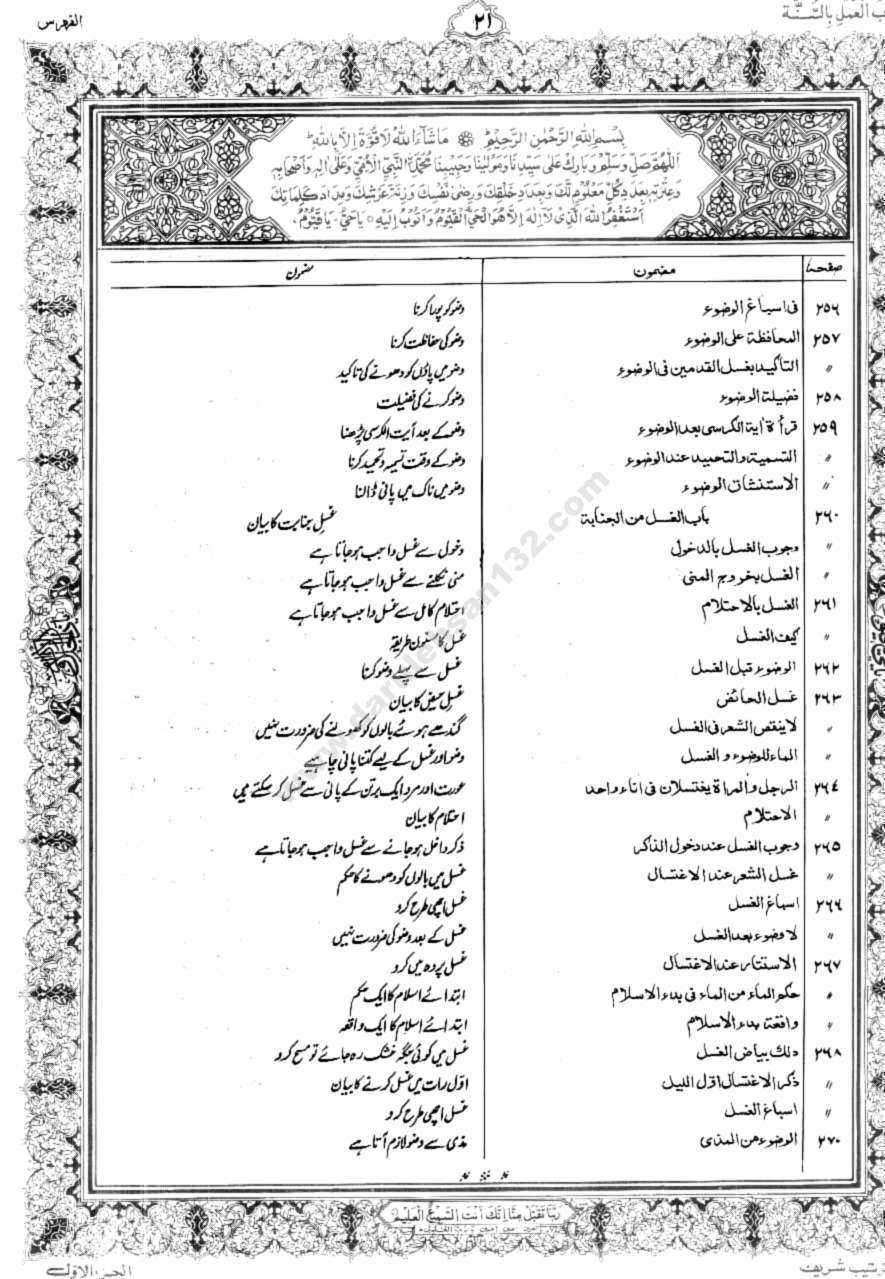 ب العمل بالسُّنَّة
۲۱
الفهرس
بِسْمِ اللهِ الرَّحْمٰنِ الرَّحِيْمِ مَا شَآءَ اللهُ لَا قُوَّةَ اِلَّا بِاللهِ
اَللّٰهُمَّ صَلِّ وَسَلِّمْ وَبَارِكْ عَلٰى سَيِّدِنَا وَمَوْلٰينَا وَحَبِيْبِنَا مُحَمَّدِ النَّبِيِّ الْاُمِّيِّ وَعَلٰى اٰلِهٖ وَاَصْحَابِهٖ
وَعِتْرَتِهٖ بِعَدَدِ كُلِّ مَعْلُوْمٍ لَّكَ وَبِعَدَدِ خَلْقِكَ وَرِضٰى نَفْسِكَ وَزِنَةِ عَرْشِكَ وَمِدَادِ كَلِمَاتِكَ
اَسْتَغْفِرُ اللهَ الَّذِىْ لَا اِلٰهَ اِلَّا هُوَ الْحَىُّ الْقَيُّوْمُ وَاَتُوْبُ اِلَيْهِ يَا حَىُّ يَا قَيُّوْمُ
صفحہ مضمون مضمون
۲۵۶ فى اسباغ الوضوء وضو کو پورا کرنا
۲۵۷ المحافظة على الوضوء وضو کی حفاظت کرنا
〃 التأكيد بغسل القدمين فى الوضوء وضو میں پاؤں کو دھونے کی تاکید
۲۵۸ فضيلة الوضوء وضو کرنے کی فضیلت
۲۵۹ قرأة اية الكرسى بعد الوضوء وضو کے بعد آیت الکرسی پڑھنا
〃 التسمية والتحميد عند الوضوء وضو کے وقت تسمیہ و تحمید کرنا
〃 الاستنشاق الوضوء وضو میں ناک میں پانی ڈالنا
۲۶۰ باب الغسل من الجنابة غسل جنابت کا بیان
〃 وجوب الغسل بالدخول دخول سے غسل واجب ہو جاتا ہے
〃 الغسل بخروج المنى منی نکلنے سے غسل واجب ہو جاتا ہے
۲۶۱ الغسل بالاحتلام احتلام کامل سے غسل واجب ہو جاتا ہے
〃 كيف الغسل غسل کا مسنون طریقہ
۲۶۲ الوضوء قبل الغسل غسل سے پہلے وضو کرنا
۲۶۳ غسل الحائض غسل حیض کا بیان
〃 لا ينقض الشعر فى الغسل گندھے ہوئے بالوں کو کھولنے کی ضرورت نہیں
〃 الماء للوضوء و الغسل وضو اور غسل کے لیے کتنا پانی چاہیے
۲۶۴ الرجل والمراة يغتسلان فى اناء واحد عورت اور مرد ایک برتن کے پانی سے غسل کر سکتے ہیں
〃 الاحتلام احتلام کا بیان
۲۶۵ وجوب الغسل عند دخول الذاكر ذکر داخل ہو جانے سے غسل واجب ہو جاتا ہے
〃 غسل الشعر عند الاغتسال غسل میں بالوں کو دھونے کا حکم
۲۶۶ اسباغ الغسل غسل اچھی طرح کرو
〃 لا وضوء بعد الغسل غسل کے بعد وضو کی ضرورت نہیں
۲۶۷ الاستتار عند الاغتسال غسل پردہ میں کرو
〃 حكم الماء من الماء فى بدء الاسلام ابتدائے اسلام کا ایک حکم
〃 واقعة بدء الاسلام ابتدائے اسلام کا ایک واقعہ
۲۶۸ دلك بياض الغسل غسل میں کوئی جگہ خشک رہ جائے تو مسح کرو
〃 ذكر الاغتسال اول الليل اوّل رات میں غسل کرنے کا بیان
〃 اسباغ الغسل غسل اچھی طرح کرو
۲۷۰ الوضوء من المذى مذی سے وضو لازم آتا ہے
رَبَّنَا تَقَبَّلْ مِنَّا اِنَّكَ اَنْتَ السَّمِيْعُ الْعَلِيْمُ
ترتيب شريف
الجزء الاوّل